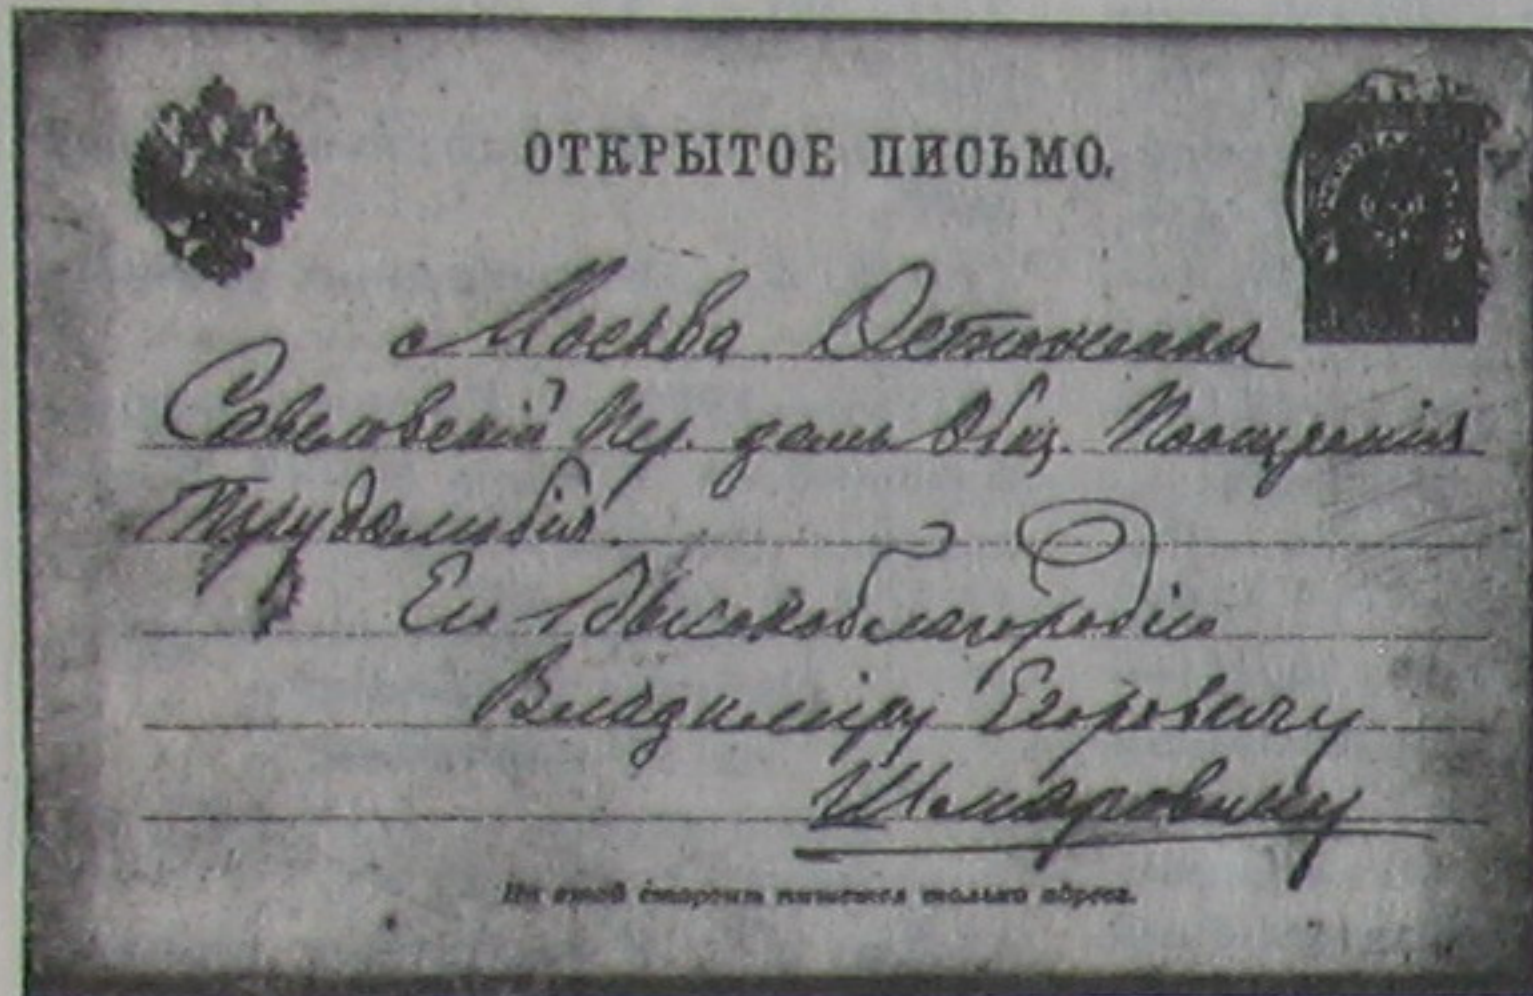 ОТКРЫТОЕ ПИСЬМО.
Москва Остоженка
Савеловский Пер. домъ Общ. Поощрения
Трудолюбія.
Его Высокоблагородію
Владиміру Егоровичу
Шмаровину
На этой сторонѣ пишется только адресъ.